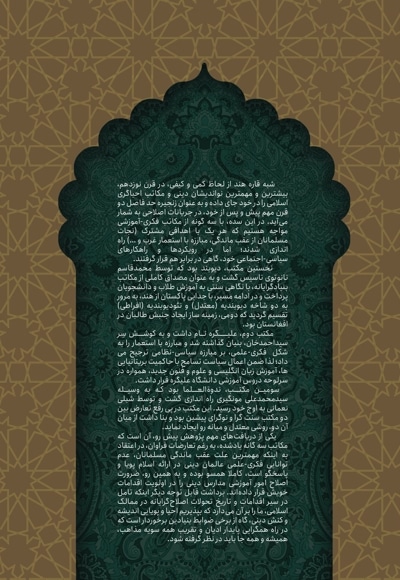 شبه قاره هند از لحاظ کمی و کیفی، در قرن نوزدهم،
بیشترین و مهمترین نواندیشان دینی و مکاتب احیاگری
اسلامی را در خود جای داده و به عنوان زنجیره حد فاصل دو
قرن مهم پیش و پس از خود، در جریانات اصلاحی به شمار
می‌آید. در این سده، با سه گونه از مکاتب فکری-آموزشی
مواجه هستیم که هر یک با اهدافی مشترک (نجات
مسلمانان از عقب ماندگی، مبارزه با استعمار غرب و ...) راه
اندازی شدند؛ اما در رویکردها و راهکارهای
سیاسی-اجتماعی خود، گاهی در برابر هم قرار گرفتند.
نخستین مکتب، دیوبند بود که توسط محمدقاسم
نانوتوی تاسیس گشت و به عنوان مصدای کاملی از مکاتب
بنیادگرایانه، با نگاهی سنتی به آموزش طلاب و دانشجویان
پرداخت و در ادامه مسیر، با جدایی پاکستان از هند، به مرور
به دو شاخه دیوبندیه (معتدل) و نئودیوبندیه (افراطی)
تقسیم گردید که دومی، زمینه ساز ایجاد جنبش طالبان در
افغانستان بود.
مکتب دوم، علیــگره نــام داشت و به کوشــش سِر
سیداحمدخان، بنیان گذاشته شد و مبارزه با استعمار را به
شکل فکری-علمی، بر مبارزه سیاسی-نظامی ترجیح می
داد؛ لذا ضمن اعمال سیاست تسامح با حاکمیت بریتانیایی
ها، آموزش زبان انگلیسی و علوم و فنون جدید، همواره در
سرلوحه دروس آموزشی دانشگاه علیگره قرار داشت.
سومین مکتــب، ندوةالعــلما بود کـه به وسیــله
سیدمحمدعلی مونگیری راه اندازی گشت و توسط شبلی
نعمانی به اوج خود رسید. این مکتب در پی رفع تعارض بین
دو مکتب سنت گرا و نوگرای پیشین بود و بنا داشت از میان
آن دو، روشی معتدل و میانه رو ایجاد نماید.
یکی از دریافت‌های مهم پژوهش پیش رو، آن است که
مکاتب سه گانه یادشده، به رغم تعارضات فراوان، در اعتقاد
به اینکه مهمترین علت عقب ماندگی مسلمانان، عدم
توانایی فکری-علمی عالمان دینی در ارائه اسلام پویا و
پاسخگو است، کاملا همسو بوده و به همین رو، ضرورت
اصلاح امور آموزشی مدارس دینی را در اولویت اقدامات
خویش قرار داده‌اند. برداشت قابل توجه دیگر اینکه تامل
در سیر اقدامات و تاریخ تحولات اصلاح‌گرایانه در ممالک
اسلامی، ما را بر آن می‌دارد که بپذیریم احیا و پویایی اندیشه
و کنش دینی، گاه از برخی ضوابط بنیادین برخوردار است که
در راه همگرایی پایدار ادیان و تقریب همه سویه مذاهب،
همیشه و همه جا باید در نظر گرفته شود.